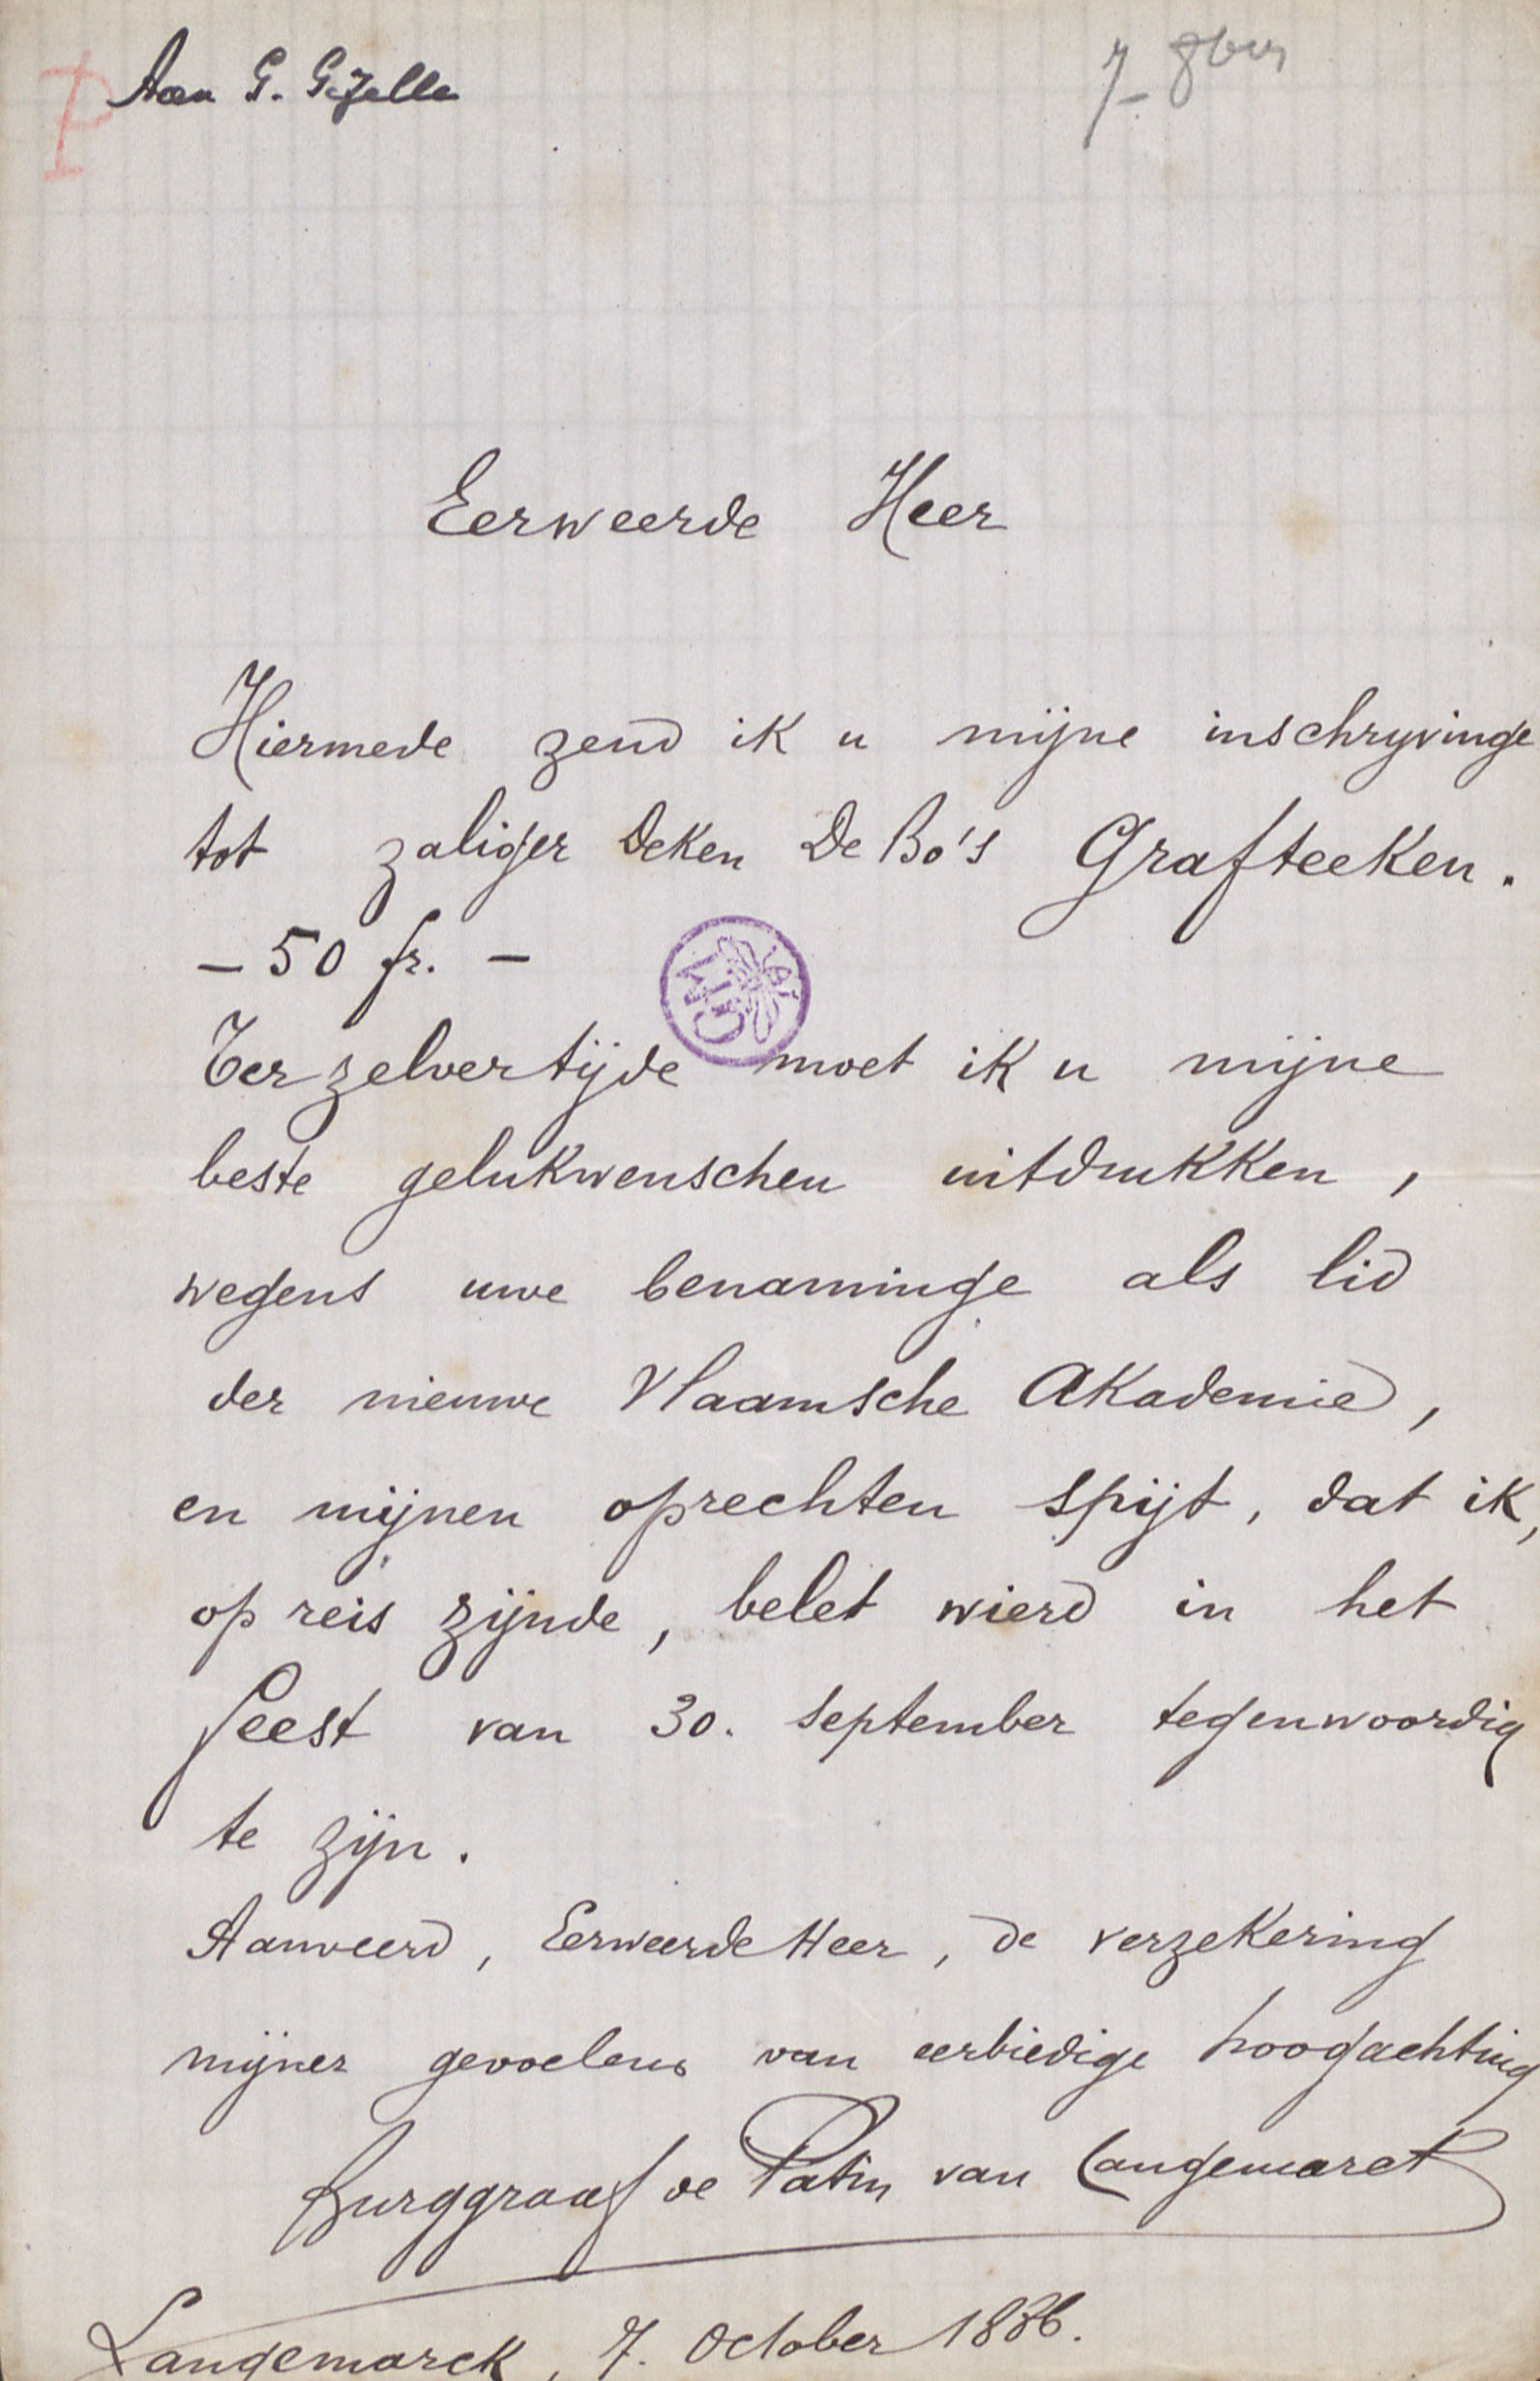 Aan G. Gezelle
7- 8ber
Eerweerde Heer
Hiermede zend ik u mijne inschryvinge
tot zaliger Deken De Bo's Grafteeken.
- 50 fr. -
Ter zelvertijde moet ik u mijne
beste gelukwenschen uitdrukken,
wegens uwe benaminge als lid
der nieuwe Vlaamsche Akademie,
en mijnen oprechten spijt, dat ik,
op reis zijnde, belet wierd in het
feest van 30. september tegenwoordig
te zijn.
Aanveerd, Eerweerde Heer, de verzekering
mijner gevoelens van eerbiedige hoogachting
Burggraaf de Patin van Langemarck
Langemarck, 7. October 1886.